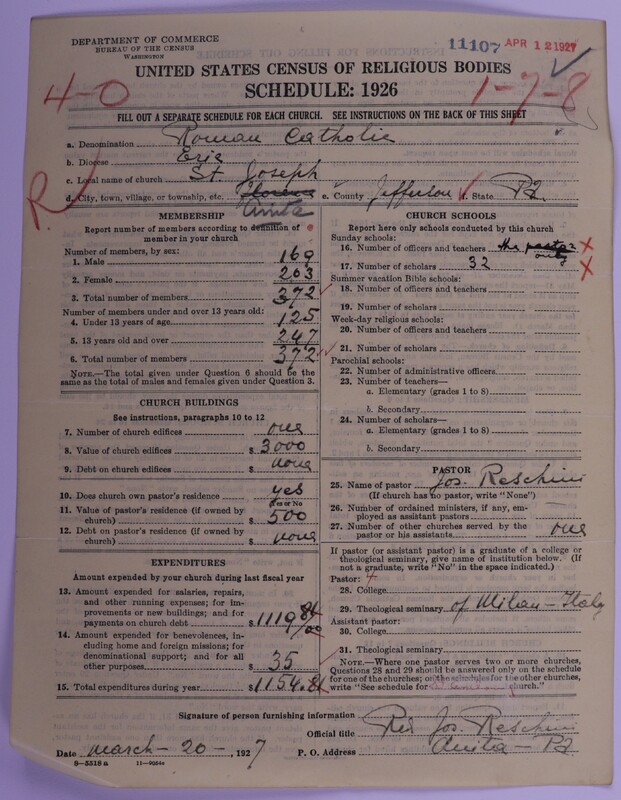 DEPARTMENT OF COMMERCE
BUREAU OF THE CENSUS
WASHINGTON
11107 APR 12 1927
UNITED STATES CENSUS OF RELIGIOUS BODIES
SCHEDULE: 1926
4-0
1-7-8
FILL OUT A SEPARATE SCHEDULE FOR EACH CHURCH. SEE INSTRUCTIONS ON THE BACK OF THIS SHEET
a. Denomination Roman Catholic
b. Diocese Erie
c. Local name of church St. Joseph
d. City, town, village, or township, etc. Florence Anita e. County Jefferson f. State Pa.
R
MEMBERSHIP
Report number of members according to definition of
member in your church
Number of members, by sex:
1. Male 169
2. Female 203
3. Total number of members 372
Number of members under and over 13 years old:
4. Under 13 years of age 125
5. 13 years old and over 247
6. Total number of members 372
NOTE.—The total given under Question 6 should be the
same as the total of males and females given under Question 3.
CHURCH BUILDINGS
See instructions, paragraphs 10 to 12
7. Number of church edifices one
8. Value of church edifices $ 3000
9. Debt on church edifices $ none
10. Does church own pastor's residence yes
(Yes or No)
11. Value of pastor's residence (if owned by
church) $ 500
12. Debt on pastor's residence (if owned by
church) $ none
EXPENDITURES
Amount expended by your church during last fiscal year
13. Amount expended for salaries, repairs,
and other running expenses; for im-
provements or new buildings; and for
payments on church debt $ 1119 84
14. Amount expended for benevolences, in-
cluding home and foreign missions; for
denominational support; and for all
other purposes $ 35 00
15. Total expenditures during year $ 1154.84
CHURCH SCHOOLS
Report here only schools conducted by this church
Sunday schools:
16. Number of officers and teachers the pastor only
17. Number of scholars 32
Summer vacation Bible schools:
18. Number of officers and teachers
19. Number of scholars
Week-day religious schools:
20. Number of officers and teachers
21. Number of scholars
Parochial schools:
22. Number of administrative officers
23. Number of teachers—
a. Elementary (grades 1 to 8)
b. Secondary
24. Number of scholars—
a. Elementary (grades 1 to 8)
b. Secondary
PASTOR
25. Name of pastor Jos. Reschini
(If church has no pastor, write "None")
26. Number of ordained ministers, if any, em-
ployed as assistant pastors
27. Number of other churches served by the
pastor or his assistants one
If pastor (or assistant pastor) is a graduate of a college or
theological seminary, give name of institution below. (If
not a graduate, write "No" in the space indicated.)
Pastor: 4
28. College
29. Theological seminary of Milan - Italy
Assistant pastor:
30. College
31. Theological seminary
NOTE.—Where one pastor serves two or more churches,
Questions 28 and 29 should be answered only on the schedule
for one of the churches; on the schedules for the other churches,
write "See schedule for church."
Signature of person furnishing information Rev Jos. Reschini
Official title
Date march - 20 -, 1927 P. O. Address Anita - Pa
8-5518 a